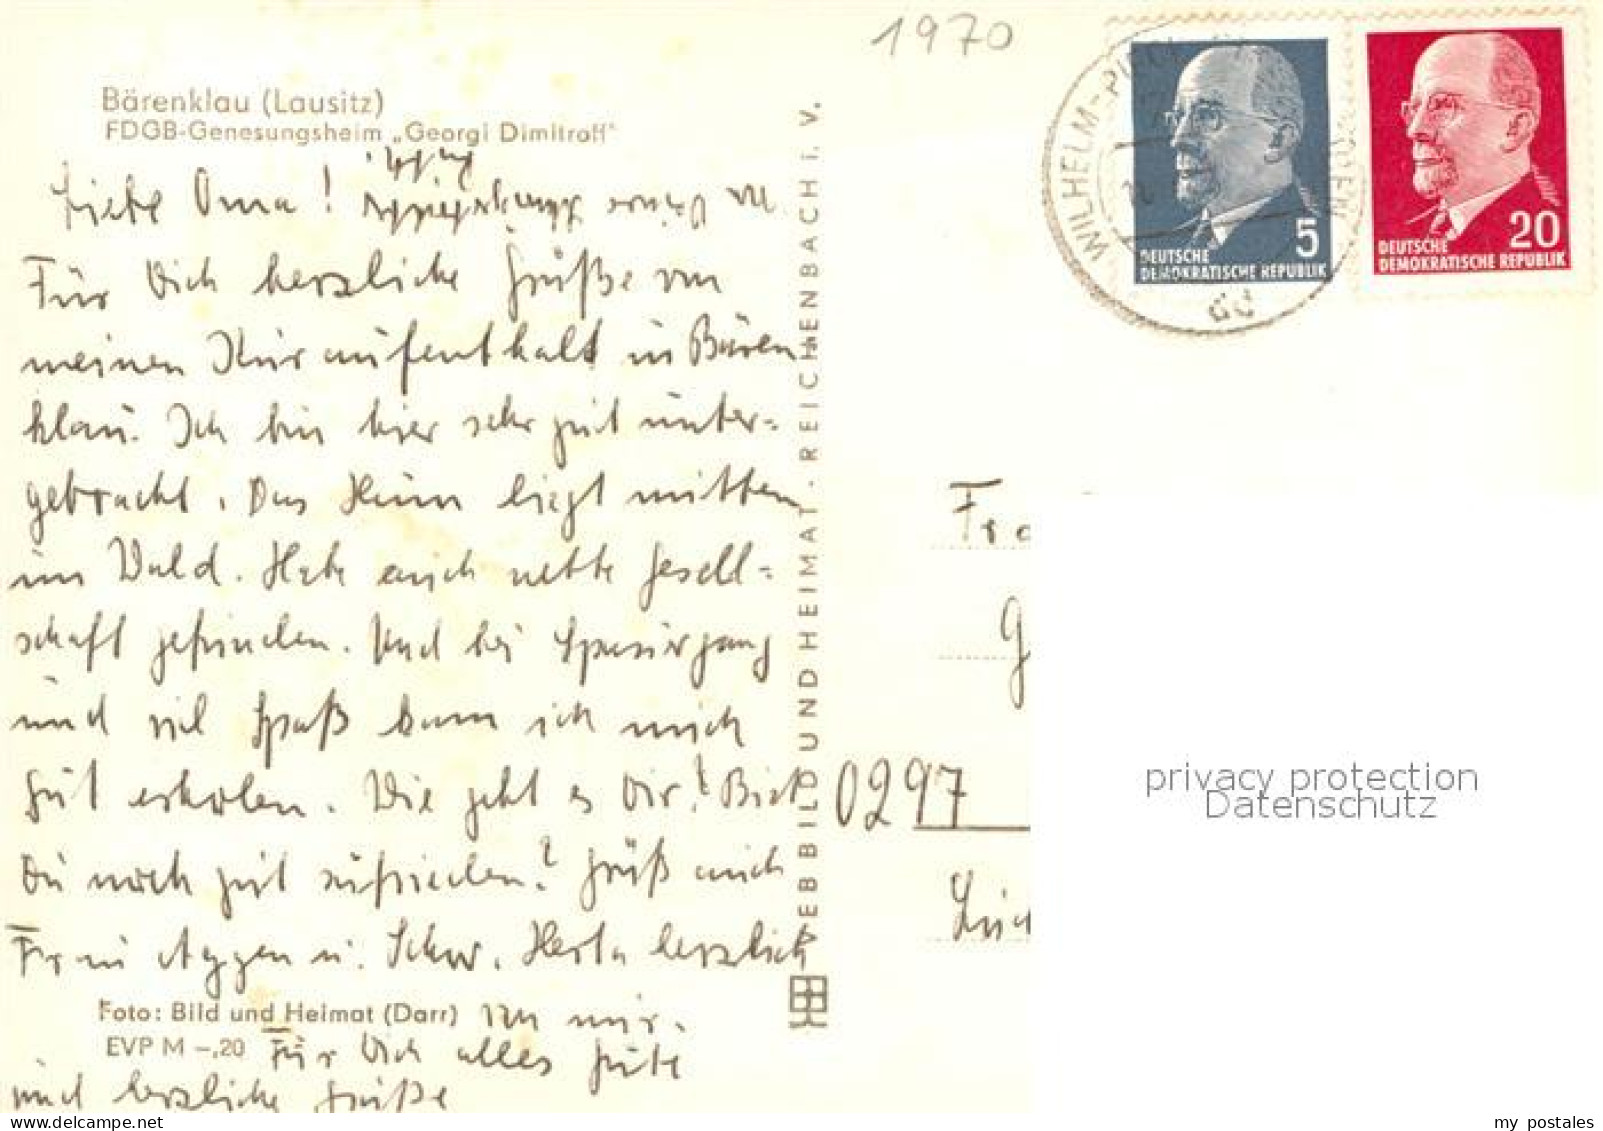 1970
Bärenklau (Lausitz)
FDGB-Genesungsheim „Georgi Dimitroff"
Liebe Oma!
Für Dich herzliche Grüße von
meinen Kuraufenthalt in Bären
klau. Ich bin hier sehr gut unter-
gebracht. Das Heim liegt mitten
im Wald. Habe auch nette Gesell-
schaft gefunden. Und bei Spaziergang
und viel Spaß kann ich mich
gut erholen. Wie geht es Dir? Bist
Du noch gut zufrieden? Grüß auch
Frau Aggen u. Schw. Herta herzlich
von mir.
Für Dich alles Gute
und herzliche Grüße
Foto: Bild und Heimat (Darr)
EVP M –,20
VEB BILD UND HEIMAT · REICHENBACH i. V.
WILHELM-PI
5
DEUTSCHE
DEMOKRATISCHE REPUBLIK
20
DEUTSCHE
DEMOKRATISCHE REPUBLIK
Fra
G
0297
privacy protection
Datenschutz
www.delcampe.net
my_postales